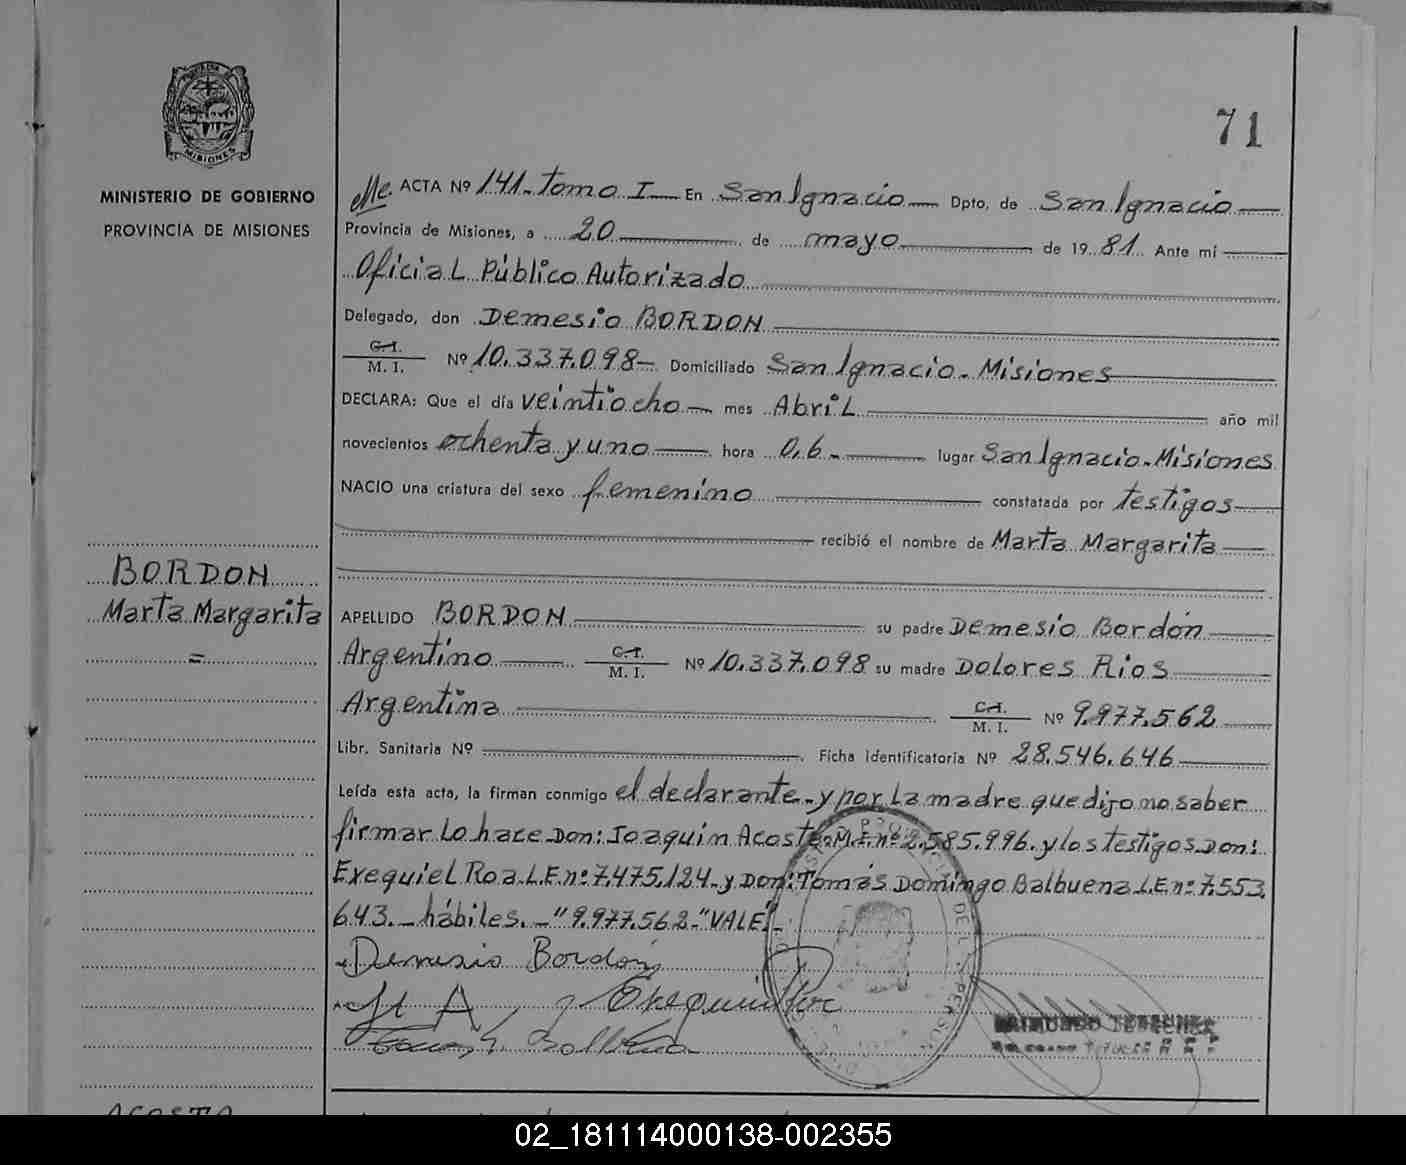 71
MISIONES
MINISTERIO DE GOBIERNO
PROVINCIA DE MISIONES
BORDON
Marta Margarita
=
ACTA Nº 141-Tomo I En San Ignacio Dpto, de San Ignacio
Provincia de Misiones, a 20 de mayo de 1981 Ante mí
Oficial Público Autorizado
Delegado, don Demesio BORDON
C.I. M. I. Nº 10.337.098 Domiciliado San Ignacio - Misiones
DECLARA: Que el día veintiocho mes Abril año mil
novecientos ochenta y uno hora 0,6 lugar San Ignacio - Misiones
NACIO una criatura del sexo femenino constatada por testigos
recibió el nombre de Marta Margarita
APELLIDO BORDON su padre Demesio Bordón
Argentino C.I. M. I. Nº 10.337.098 su madre Dolores Rios
Argentina C.I. M. I. Nº 9.977.562
Libr. Sanitaria Nº Ficha identificatoria Nº 28.546.646
Leída esta acta, la firman conmigo el declarante - y por la madre que dijo no saber
firmar lo hace Don: Joaquin Acosta M.I. nº 2.585.996. y los testigos Don:
Exequiel Roa L.E. nº 7.475.124 - y Don: Tomás Domingo Balbuena L.E. nº 7.553.
643. - hábiles. - "9.977.562 - "VALE" -
Demesio Bordón
RAIMUNDO
ACOSTA
02_181114000138-002355